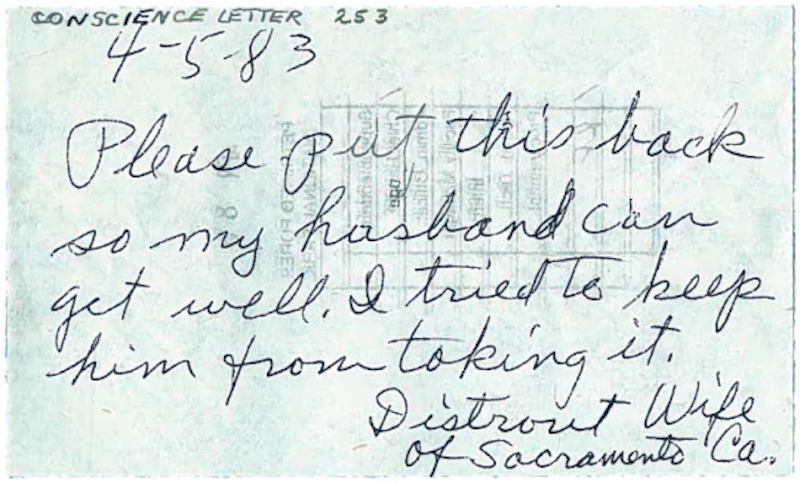 CONSCIENCE LETTER 253
4-5-83
Please put this back
so my husband can
get well. I tried to keep
him from taking it.
Distrout Wife
of Sacramento Ca.